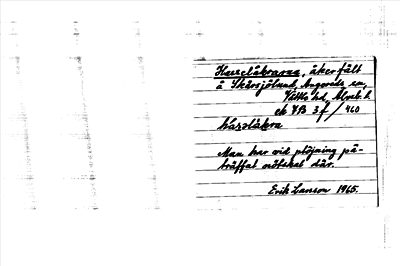 Hasselåkrarna, åkerfält
å Skårsjölund, Angereds sn,
Vättle hd, Älvsb. l.
ek 7B 3f / 460
hasslåkra
Man har vid plöjning på-
träffat nötskal där.
Erik Larson 1965.